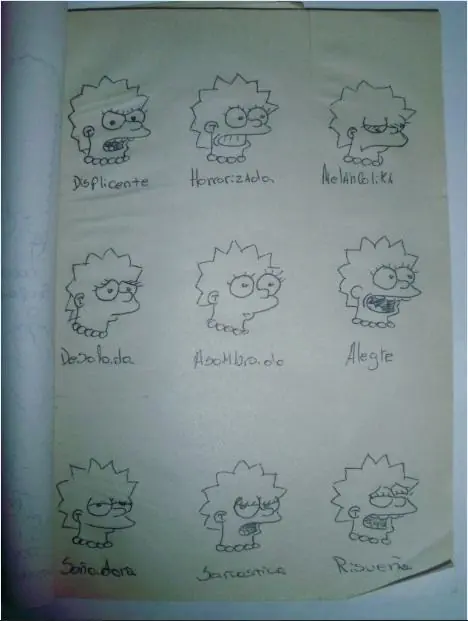 Displicente
Horrorizada
Melancolika
Desolada
Asombrado
Alegre
Soñadora
Sarcastica
Risueña